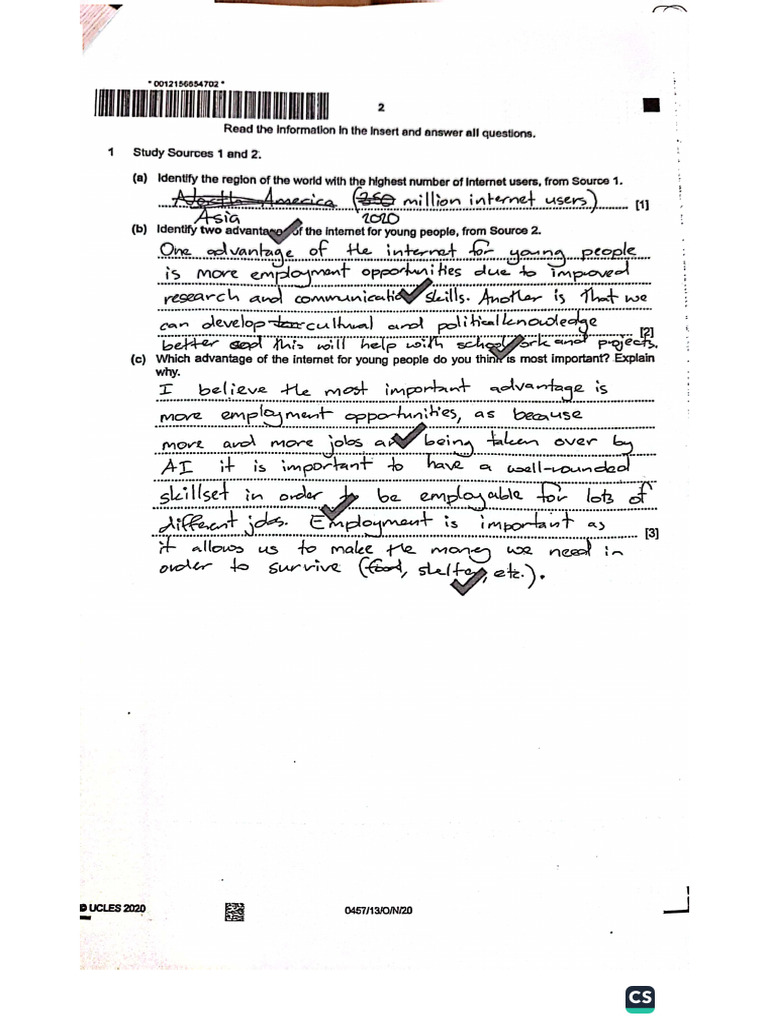 * 0012156654702 *
2
Read the information in the insert and answer all questions.
1 Study Sources 1 and 2.
(a) Identify the region of the world with the highest number of internet users, from Source 1.
North America (350 million internet users) [1]
Asia 2020
(b) Identify two advantages of the internet for young people, from Source 2.
One advantage of the internet for young people
is more employment opportunities due to improved
research and communication skills. Another is that we
can develop cultural and political knowledge
[2]
better this will help with schoolwork and projects.
(c) Which advantage of the internet for young people do you think is most important? Explain
why.
I believe the most important advantage is
more employment opportunities, as because
more and more jobs are being taken over by
AI it is important to have a well-rounded
skillset in order to be employable for lots of
different jobs. Employment is important as [3]
it allows us to make the money we need in
order to survive (food, shelter, etc.).
© UCLES 2020
0457/13/O/N/20
CS